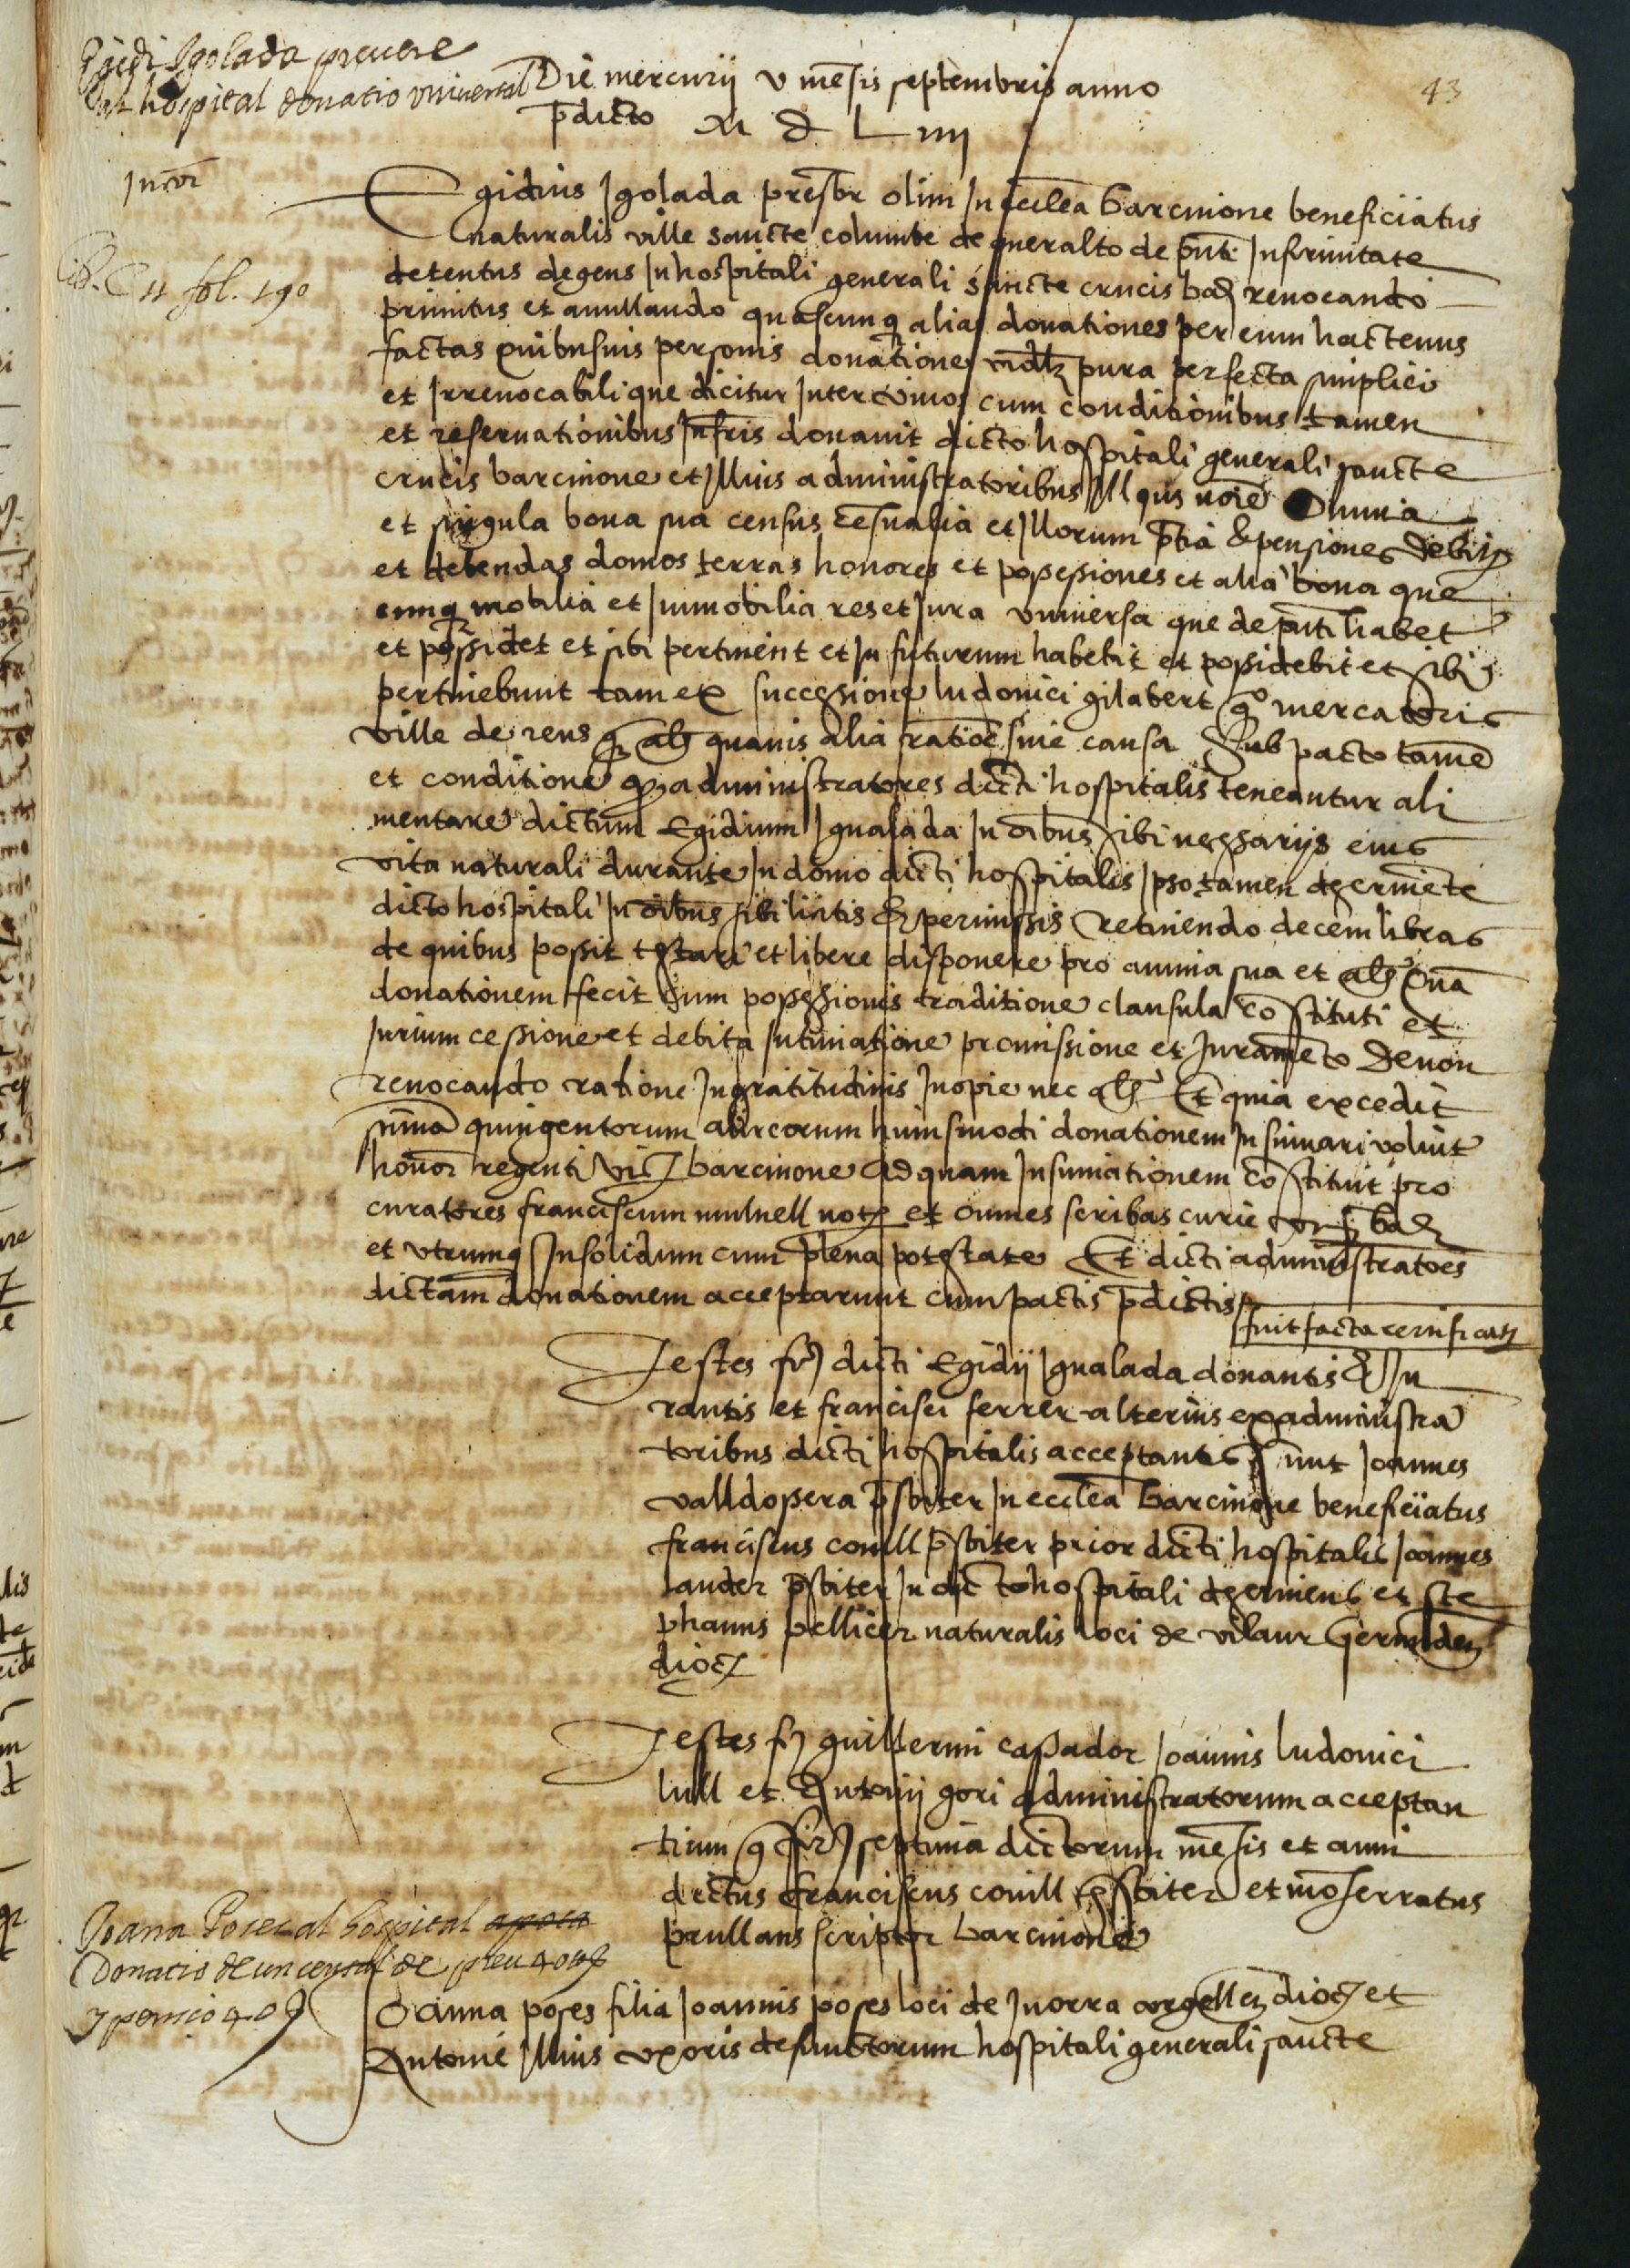 Egidi Igolada prevere
al hospital donatio universal
Die mercurii v mēsis septembris anno
p̄dicto M D L iiij
43
Incor̄
Lib. C 11 fol. 190
Egidius Igolada presbr̄ olim In eccl̄ea barcinone beneficiatus
naturalis ville sancte columbe de queralto de pn̄ti Infirmitate
detentus degens In hospitali generali sancte crucis bar̄ revocando
primitus et anullando quascunq alias donationes per eum hactenus
factas quibusvis personis donatione vidz pura perfecta simplici
et Irrevocabili que dicitur Inter vivos cum conditionibus tamen
et reservationibus Infrīs donavit dicto hospitali generali sancte
crucis barcinone et Illius administratoribus Illius noīe Omnia
et singula bona sua census cēsualia et Illorum p̄tia & pensiones debitas
et debendas domos terras honores et possessiones et alia bona que
cunq mobilia et Inmobilia res et Jura universa que de pn̄ti habet
et possidet et sibi pertinent et In futurum habebit et possidebit et sibi
pertinebunt tam ex successione ludovici gilabert qº mercatoris
ville de reus q̄ als̄ quavis alia ratiōe sive causa Sub pacto tamē
et conditione q administratores dicti hospitalis teneantur ali
mentare dictum Egidium Igualada In oībus sibi necssariis eius
vita naturali durante In domo dicti hospitalis Ipso tamen deserviēte
dicto hospitali In oībus sibi licitis & permissis Retinendo decem libras
de quibus possit testari et libere disponere pro anima sua et als̄ Quā
donationem fecit cum possessionis traditione clausula cōstituti et
Jurium cessione et debita Intimatione promissione et Juramēto de non
revocando ratione Ingratitudinis Inopie nec als̄ Et quia excedit
sūmā quingentorum aureorum huiusmodi donationem Insinuari voluit
honor̄ regenti vic̄ barcinone Ad quam Insinuationem cōstituit pro
curatores franciscum mulnell not̄ et omnes scribas curie bar̄
et utrumq Insolidum cum plena potestate Et dicti administratoēs
dictam donationem acceptarunt cum pactis p̄dictis
fuit facta certificat̄
Testes fir̄ dicti Egidii Igualada donantis & Ju
rantis et francisci ferrer alterius ex administra
toribus dicti hospitalis acceptantis sunt Joannes
valldopera p̄sbiter In eccl̄ea barcinone beneficiatus
franciscus conill p̄sbiter prior dicti hospitalis Joannes
lauder p̄sbiter In dicto hospitali deserviens et ste
phanus pellicer naturalis loci de vilaur Gerunden̄
dioc̄
Testes fir̄ guillermi cassador Joannis ludovici
lull et Antonii gori administratorum acceptan
tium q̄ fir̄ septima dictorum mēsis et anni
dictus franciscus conill p̄sbiter et mōserratus
prullans scriptor barcinone
Joana Poses al hospital apoca
Donatio de un censal de preu 40
y pensio 40 s
Joanna poses filia Joannis poses loci de Jvorra urgellen̄ dioc̄ et
Antonie Illius uxoris defunctorum hospitali generali sancte